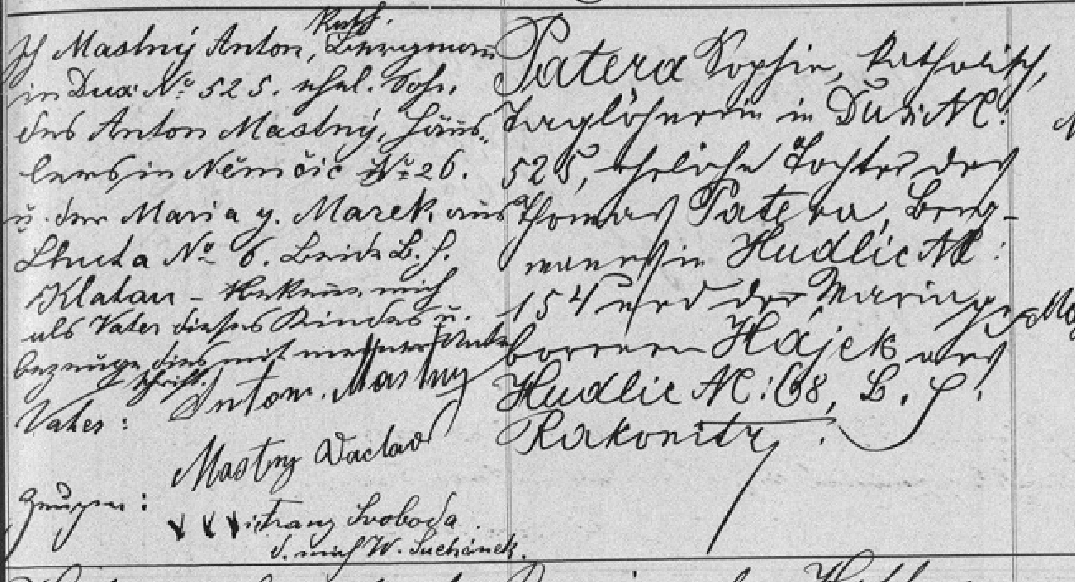 kath.
Ich Mastný Anton, Bergmann
in Dux No 525. ehel. Sohn
des Anton Mastný, Häus-
lers in Němčic No 26.
u. der Maria g. Marek aus
No 6. Bezirk B. H.
Klatau - Bekenne mich
als Vater dieses Kindes u.
bezeuge dies mit meiner Unter
schrift.
Vater: Anton Mastný
Mastny Vaclav
Zeugen:
Franz Svoboda
d. mich W. Suchánek.
Patera Sophie, katholisch,
Taglöhnerin in Dux NC:
525, eheliche Tochter des
Thomas Patera, Berg-
manns in Hudlic NC:
154 und der Maria ge-
borenen Hájek aus
Hudlic NC: 68, B. H.
Rakonitz.